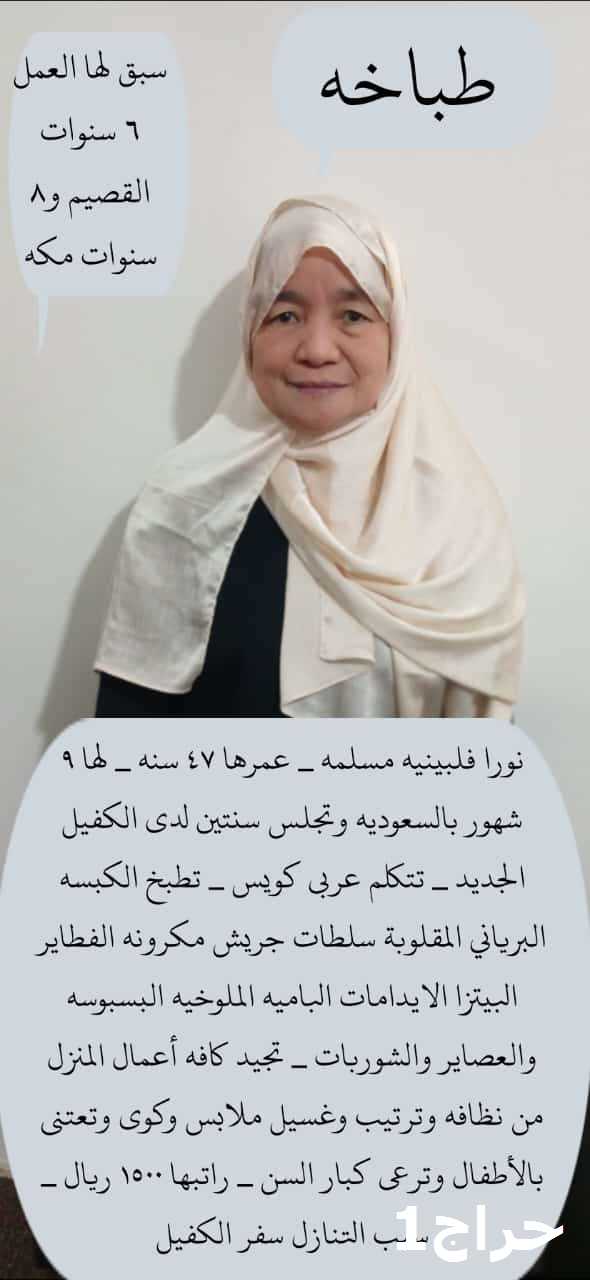 طباخه
سبق لها العمل
٦ سنوات
القصيم و٨
سنوات مكه
نورا فلبينيه مسلمه _ عمرها ٤٧ سنه _ لها ٩
شهور بالسعوديه وتجلس سنتين لدى الكفيل
الجديد _ تتكلم عربى كويس _ تطبخ الكبسه
البرياني المقلوبة سلطات جريش مكرونه الفطاير
البيتزا الايدامات الباميه الملوخيه البسبوسه
والعصاير والشوربات _ تجيد كافه أعمال المنزل
من نظافه وترتيب وغسيل ملابس وكوى وتعتنى
بالأطفال وترعى كبار السن _ راتبها ١٥٠٠ ريال _
سبب التنازل سفر الكفيل
حراج1